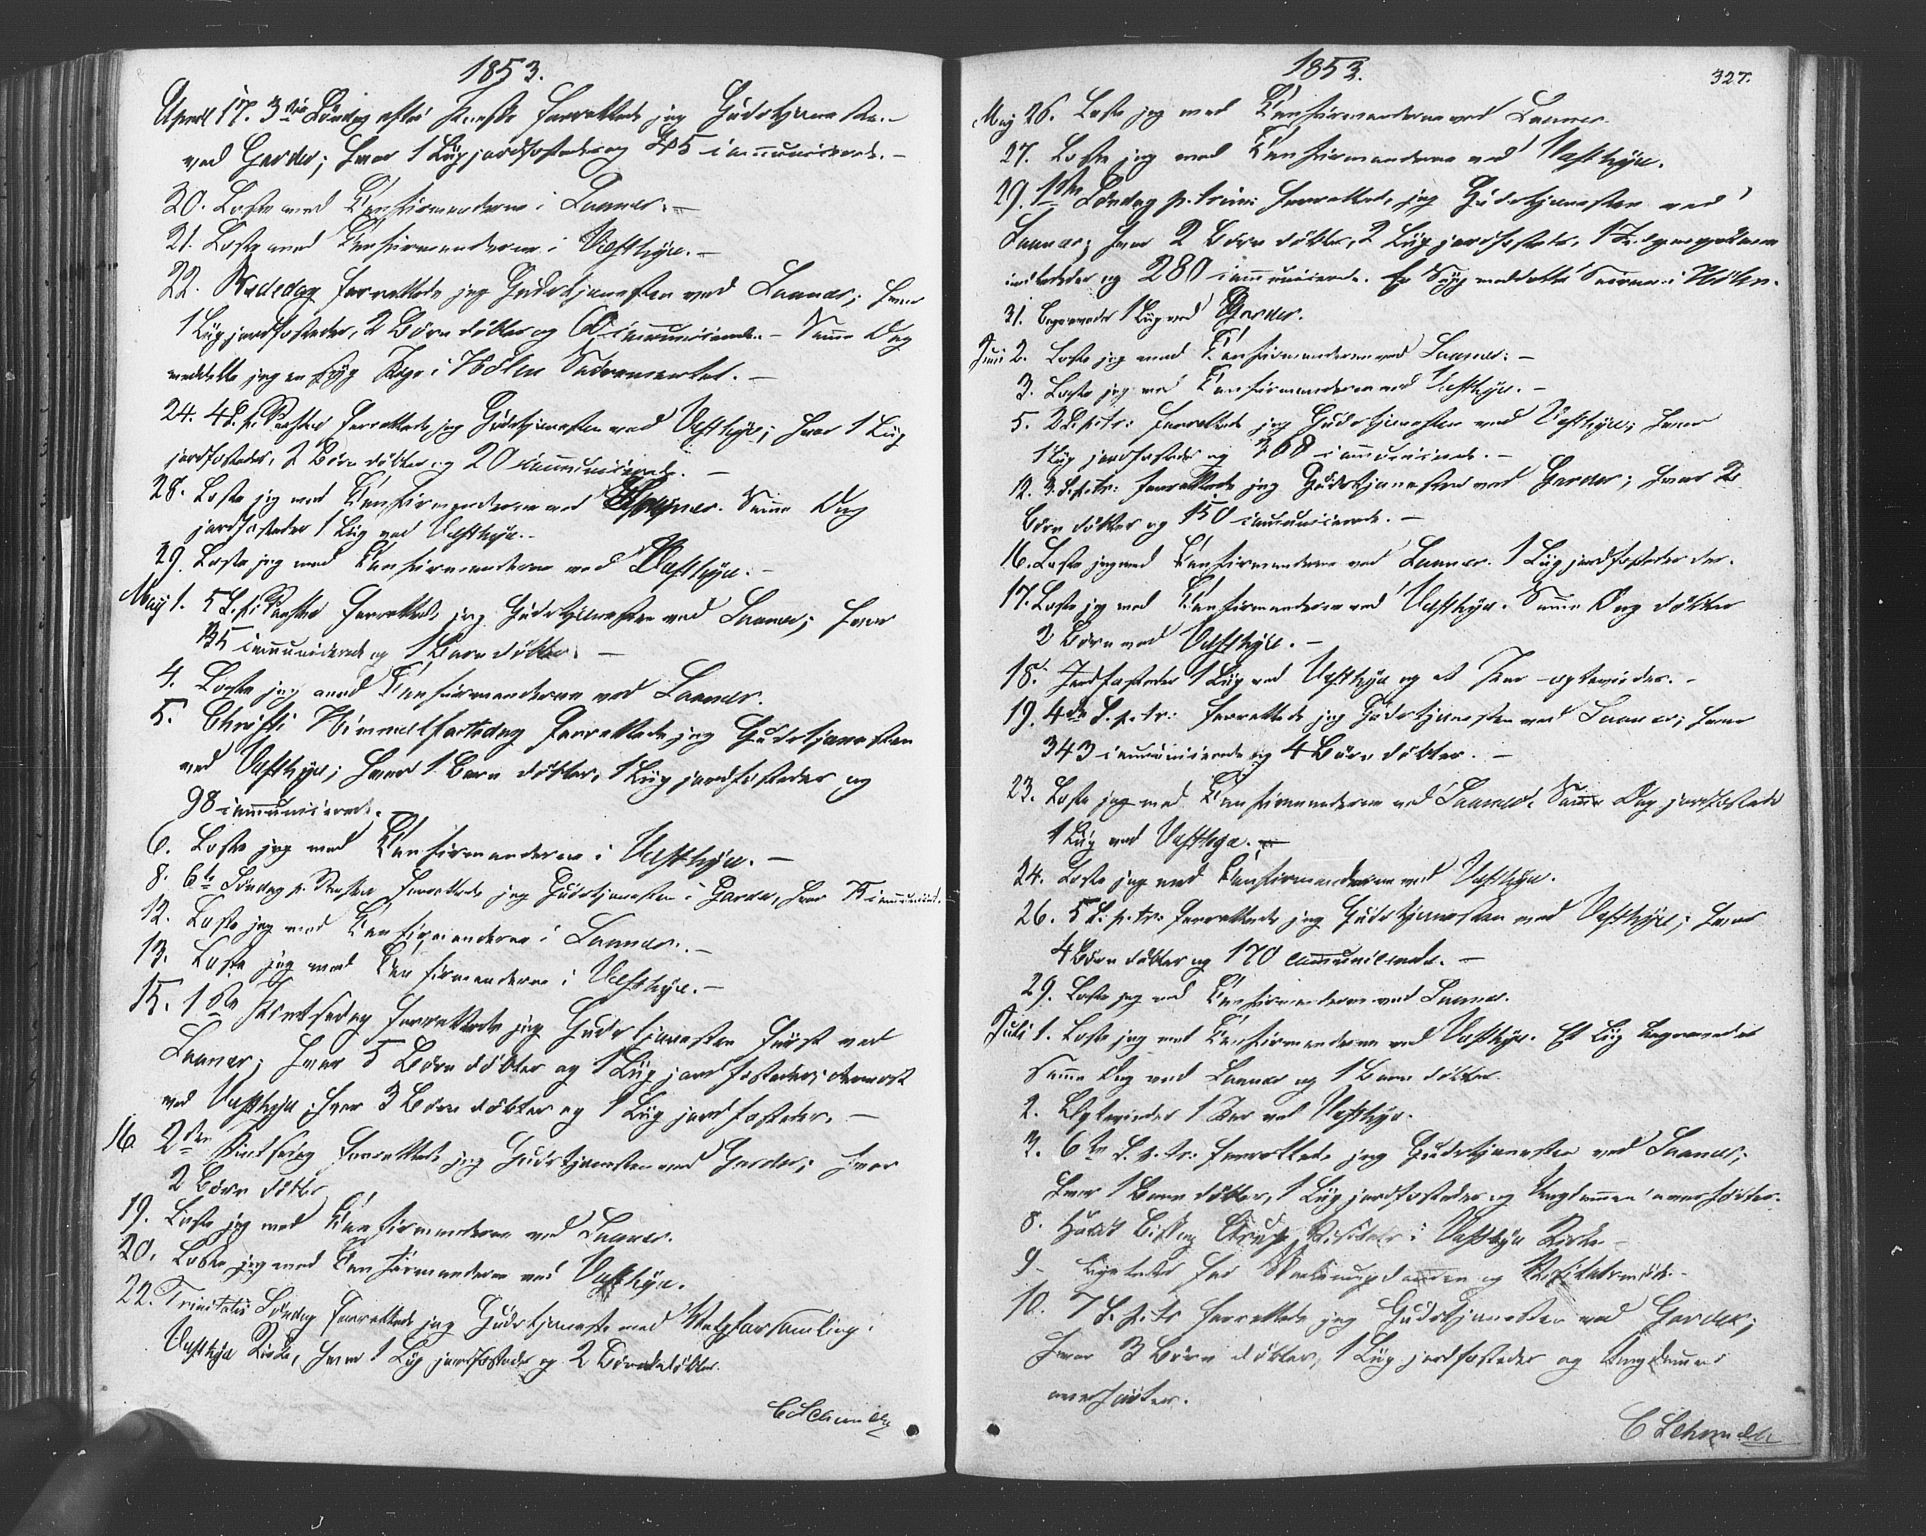 1853.
April 17. 3die Søndag efter Paaske forrettede jeg Gudstjenesten
ved Garder; hvor 1 Liig jordfæstedes og 245 communicerede. –
20. Læste med Confirmanderne i Laaner. –
21. Læste med Confirmanderne i Vestbye. –
22. Bededag forrettede jeg Gudstjenesten ved Laaner; hvor
1 Liig jordfæstedes, 2 Børn døbtes og communicerede. – Samme Dag
meddelte jeg en syg i Hølen Sacramentet. –
24. 4 S. p. Paaske forrettede jeg Gudstjenesten ved Vestbye; hvor 1 Liig
jordfæstedes, 2 Børn døbtes og 20 communicerede. –
28. Læste jeg med Confirmanderne ved Laaner. Samme Dag
jordfæstedes 1 Liig ved Vestbye. –
29. Læste jeg med Confirmanderne ved Vestbye. –
May 1. 5 S. p. Paaske forrettede jeg Gudstjenesten ved Laaner; hvor
communicerede og 1 Barn døbtes. –
4. Læste jeg med Confirmanderne ved Laaner.
5. Christi Himmelfartsdag forrettede jeg Gudstjenesten
ved Vestbye; hvor 1 Barn døbtes, 1 Liig jordfæstedes og
98 communicerede.
6. Læste jeg med Confirmanderne i Vestbye. –
8. 6te Søndag p. Paaske forrettede jeg Gudstjenesten i Garder, hvor 75 communicerede.
12. Læste jeg med Confirmanderne i Laaner. –
13. Læste jeg med Confirmanderne i Vestbye. –
15. 1ste Pintsedag forrettede jeg Gudstjenesten først ved
Laaner; hvor 5 Børn døbtes og 1 Liig jordfæstedes; dernæst
ved Vestbye; hvor 3 Børn døbtes og 1 Liig jordfæstedes. –
16. 2den Pintsedag forrettede jeg Gudstjenesten ved Garder; hvor
2 Børn døbtes
19. Læste jeg med Confirmanderne ved Laaner.
20. Læste jeg med Confirmanderne ved Vestbye.
22. Trinitatis Søndag forrettede jeg Gudstjeneste med Valgforsamling i
Vestbye Kirke, hvor 1 Liig jordfæstedes og 2 Børn døbtes.
C Schmidt
1853.
327.
Maj 26. Læste jeg med Confirmanderne ved Laaner.
27. Læste jeg med Confirmanderne ved Vestbye.
29. 1ste Søndag p. Trin: forrettede jeg Gudstjenesten ved
Laaner; hvor 2 Børn døbtes, 2 Liig jordfæstedes, 1
indlededes og 280 communicerede. En Syg meddeltes Sacram. i Hølen.
31. Begravedes 1 Liig ved Garder.
Juni 2. Læste jeg med Confirmanderne ved Laaner. –
3. Læste jeg med Confirmanderne ved Vestbye. –
5. 2 S. p. tr: forrettede jeg Gudstjenesten ved Vestbye; hvor
1 Liig jordfæstedes og 268 communicerede. –
12. 3 S. p. tr: forrettede jeg Gudstjenesten ved Garder; hvor 2
Børn døbtes og 150 communicerede. –
16. Læste jeg med Confirmanderne ved Laaner. 1 Liig jordfæstedes der.
17. Læste jeg med Confirmanderne ved Vestbye. Samme Dag døbtes
2 Børn ved Vestbye. –
18. Jordfæstedes 1 Liig ved Vestbye og et Par copulerdes. –
19. 4de S. p. tr: forrettede jeg Gudstjenesten ved Laaner; hvor
343 communicerede og 4 Børn døbtes. –
23. Læste jeg med Confirmanderne ved Laaner. Samme Dag jordfæstedes
1 Liig ved Vestbye. –
24. Læste jeg med Confirmanderne ved Vestbye.
26. 5 S. p. tr: forrettede jeg Gudstjenesten ved Vestbye; hvor
4 Børn døbtes og 170 communicerede. –
29. Læste jeg med Confirmanderne ved Laaner.
Juli 1. Læste jeg med Confirmanderne ved Vestbye. Et Liig begravedes
Samme Dag ved Laaner og 1 Barn døbtes.
2. 1 Par ved Vestbye.
3. 6te S. p. tr: forrettede jeg Gudstjenesten ved Laaner;
hvor 1 Barn døbtes, 1 Liig jordfæstedes og Ungdommen overhørtes.
8. Holdt Biskop Arup Visitats i Vestbye Kirke –
9. og
10. 7 S. p. tr forrettede jeg Gudstjenesten ved Garder;
hvor 3 Børn døbtes, 1 Liig jordfæstedes og Ungdommen
overhørtes.
C Schmidt